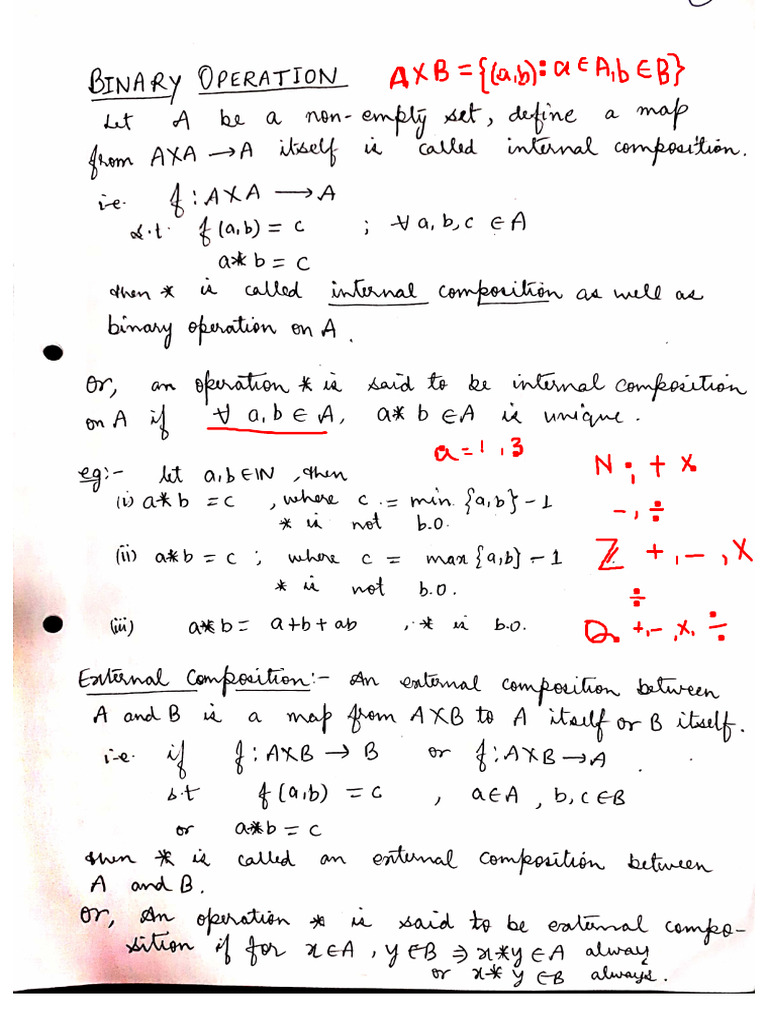 BINARY OPERATION A×B = {(a,b): a∈A, b∈B}
Let A be a non-empty set, define a map
from A×A → A itself is called internal composition.
i.e. f : A×A → A
s.t. f(a,b) = c ; ∀ a,b,c ∈ A
a*b = c
then * is called internal composition as well as
binary operation on A.
Or, an operation * is said to be internal composition
on A if ∀ a,b ∈ A, a*b ∈ A is unique.
a = 1, 3
eg:- let a,b ∈ IN, then
N ; + ×
(i) a*b = c , where c = min {a,b} - 1
- , ÷
* is not b.o.
(ii) a*b = c ; where c = max {a,b} - 1
Z +, -, ×
* is not b.o.
÷
(iii) a*b = a+b+ab , * is b.o.
Q. +, -, ×, ÷
External Composition:- An external composition between
A and B is a map from A×B to A itself or B itself.
i.e. if f : A×B → B or f : A×B → A .
s.t f(a,b) = c , a∈A , b,c∈B
or a*b = c
then * is called an external composition between
A and B.
Or, An operation * is said to be external compo-
sition if for x∈A, y∈B ⇒ x*y∈A always
or x*y∈B always.